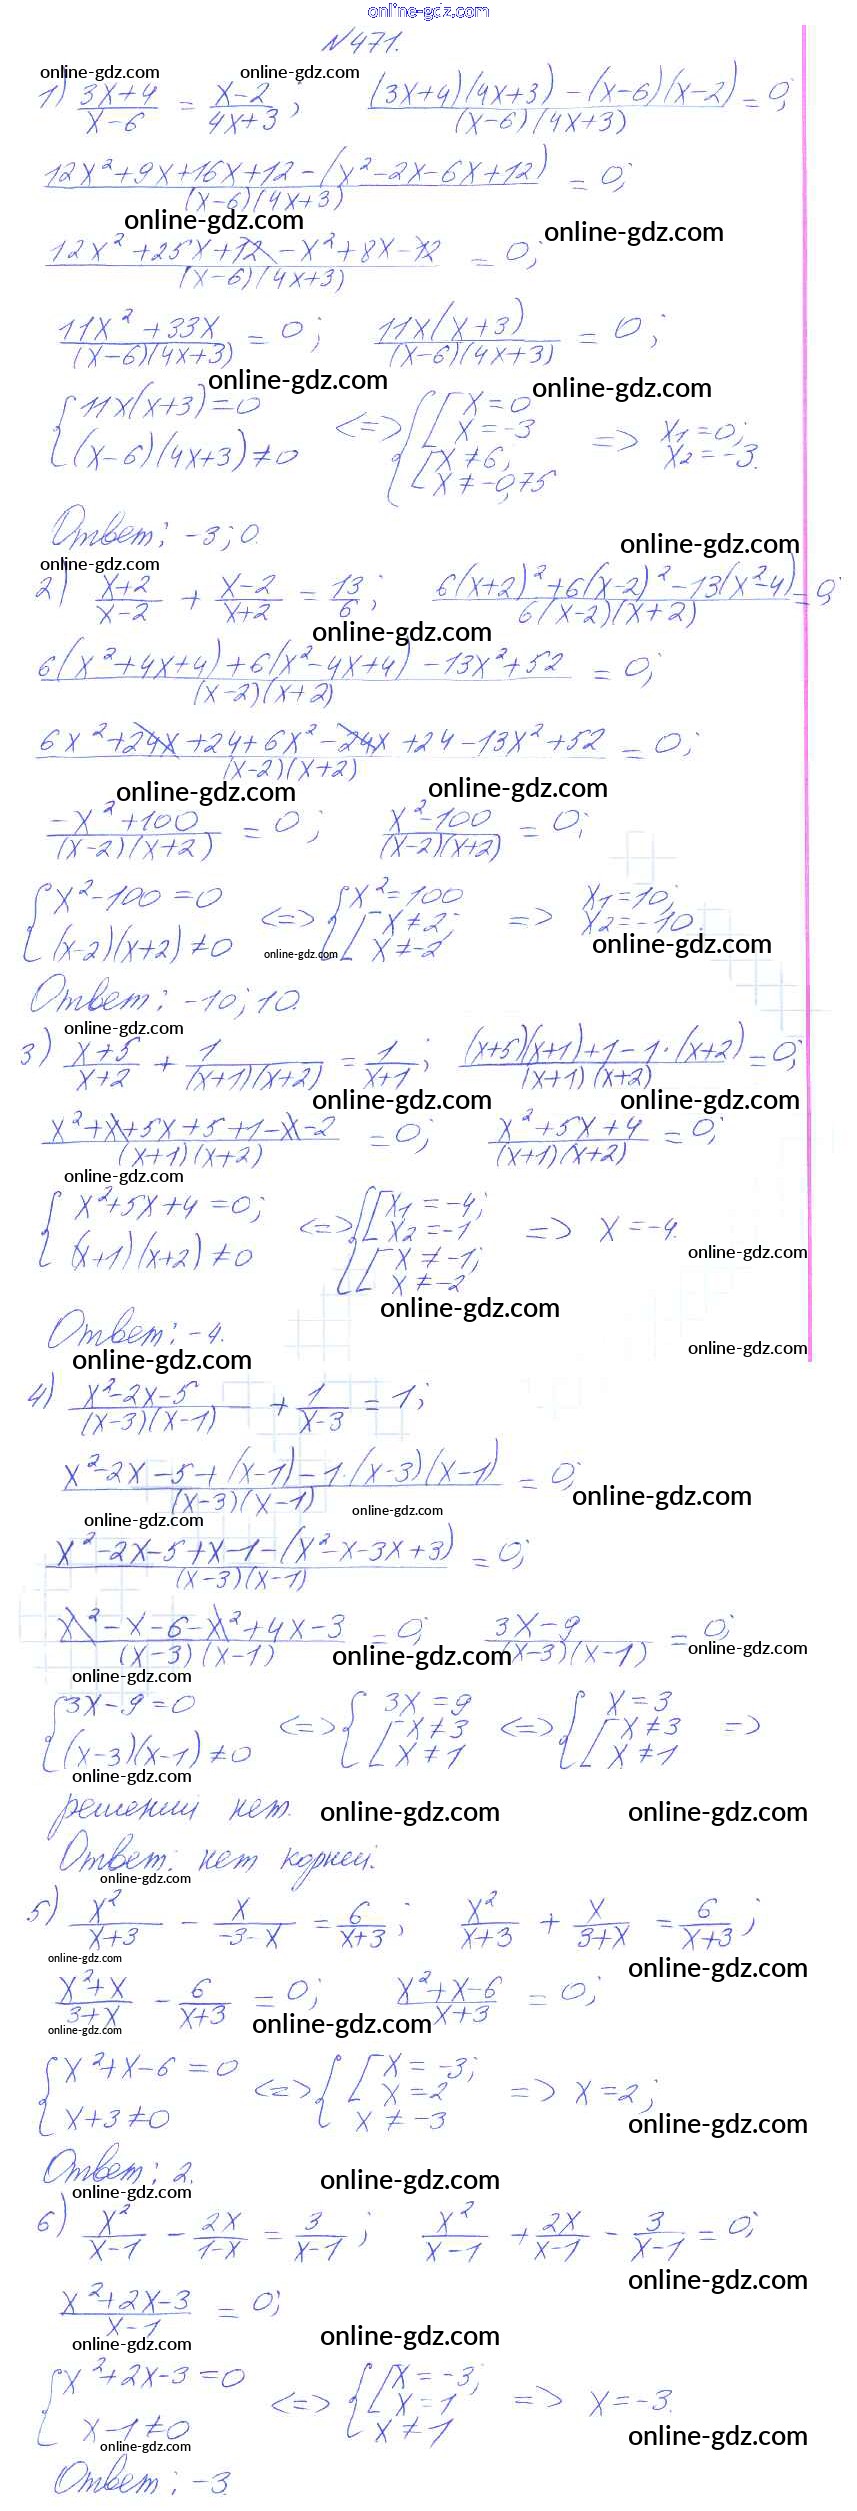 online-gdz.com
N471.
online-gdz.com online-gdz.com
1) (3x+4)/(x-6) = (x-2)/(4x+3); ((3x+4)(4x+3)-(x-6)(x-2))/((x-6)(4x+3)) = 0;
(12x²+9x+16x+12-(x²-2x-6x+12))/((x-6)(4x+3)) = 0;
online-gdz.com online-gdz.com
(12x²+25x+12-x²+8x-12)/((x-6)(4x+3)) = 0;
(11x²+33x)/((x-6)(4x+3)) = 0; (11x(x+3))/((x-6)(4x+3)) = 0;
online-gdz.com online-gdz.com
{11x(x+3)=0 (x-6)(4x+3)≠0 <=> {[x=0 x=-3 [x≠6, x≠-0,75 => x₁=0; x₂=-3.
Ответ: -3; 0.
online-gdz.com online-gdz.com
2) (x+2)/(x-2) + (x-2)/(x+2) = 13/6; (6(x+2)²+6(x-2)²-13(x²-4))/(6(x-2)(x+2)) = 0;
online-gdz.com
(6(x²+4x+4)+6(x²-4x+4)-13x²+52)/((x-2)(x+2)) = 0;
(6x²+24x+24+6x²-24x+24-13x²+52)/((x-2)(x+2)) = 0;
online-gdz.com online-gdz.com
(-x²+100)/((x-2)(x+2)) = 0; (x²-100)/((x-2)(x+2)) = 0;
{x²-100=0 (x-2)(x+2)≠0 <=> {x²=100 [x≠2; x≠-2 => x₁=10; x₂=-10.
online-gdz.com online-gdz.com
Ответ: -10; 10.
online-gdz.com
3) (x+5)/(x+2) + 1/((x+1)(x+2)) = 1/(x+1); ((x+5)(x+1)+1-1·(x+2))/((x+1)(x+2)) = 0;
online-gdz.com online-gdz.com
(x²+x+5x+5+1-x-2)/((x+1)(x+2)) = 0; (x²+5x+4)/((x+1)(x+2)) = 0;
online-gdz.com
{x²+5x+4=0; (x+1)(x+2)≠0 <=> {[x₁=-4; x₂=-1 [x≠-1; x≠-2 => x=-4.
online-gdz.com
online-gdz.com
Ответ: -4.
online-gdz.com
online-gdz.com
4) (x²-2x-5)/((x-3)(x-1)) + 1/(x-3) = 1;
(x²-2x-5+(x-1)-1·(x-3)(x-1))/((x-3)(x-1)) = 0;
online-gdz.com
online-gdz.com online-gdz.com
(x²-2x-5+x-1-(x²-x-3x+3))/((x-3)(x-1)) = 0;
(x²-x-6-x²+4x-3)/((x-3)(x-1)) = 0; (3x-9)/((x-3)(x-1)) = 0;
online-gdz.com online-gdz.com online-gdz.com
{3x-9=0 (x-3)(x-1)≠0 <=> {3x=9 [x≠3 x≠1 <=> {x=3 [x≠3 x≠1 =>
online-gdz.com
решений нет. online-gdz.com online-gdz.com
Ответ: нет корней.
online-gdz.com
5) x²/(x+3) - x/(-3-x) = 6/(x+3); x²/(x+3) + x/(3+x) = 6/(x+3);
online-gdz.com online-gdz.com
(x²+x)/(3+x) - 6/(x+3) = 0; (x²+x-6)/(x+3) = 0;
online-gdz.com online-gdz.com
{x²+x-6=0 x+3≠0 <=> {[x=-3; x=2 x≠-3 => x=2;
online-gdz.com
Ответ: 2.
online-gdz.com online-gdz.com
6) x²/(x-1) - 2x/(1-x) = 3/(x-1); x²/(x-1) + 2x/(x-1) - 3/(x-1) = 0;
online-gdz.com
(x²+2x-3)/(x-1) = 0;
online-gdz.com online-gdz.com
{x²+2x-3=0 x-1≠0 <=> {[x=-3; x=1 x≠1 => x=-3.
online-gdz.com online-gdz.com
Ответ: -3.